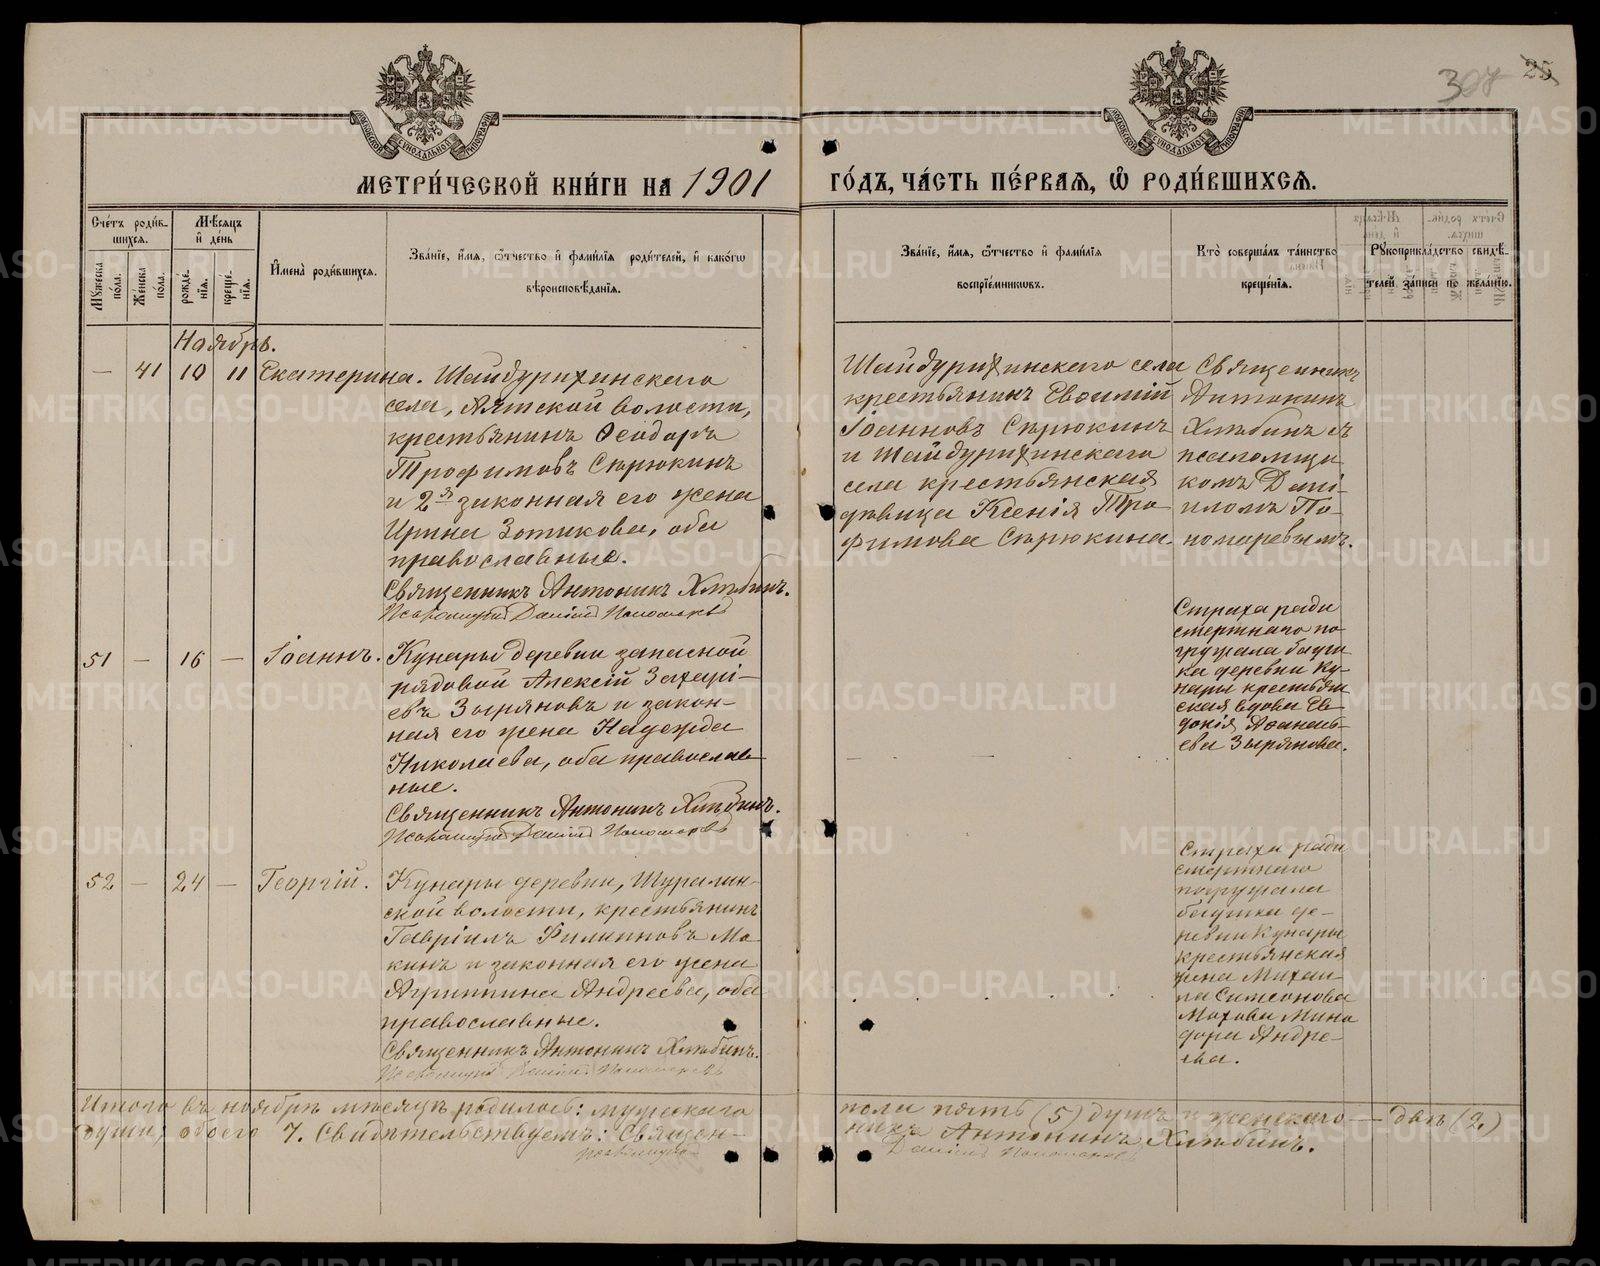 307 25
МЕТРИ́ЧЕСКОЙ КНИ́ГИ НА 1901 ГО́ДЪ, ЧА́СТЬ ПЕ́РВАЯ, Ѿ РОДИ́ВШИХСЯ.
Сче́тъ роди́вшихся.
Му́жеска по́ла.
Же́нска по́ла.
Мѣ́сяцъ и де́нь
рожде́нїя.
креще́нїя.
И҆мена̀ роди́вшихся.
Зва́нїе, и҆́мя, ѻ҆́тчество и҆ фами́лїя роди́телей, и҆ како́гѡ
вѣроисповѣ́данїя.
Зва́нїе, и҆́мя, ѻ҆́тчество и҆ фами́лїя
воспрїе́мникѡвъ.
Кто̀ соверша́лъ та́инство
креще́нїя.
Рꙋкоприкла́дство свидѣ́телей за́писи по жела́нїю.
Ноябрь.
— 41 10 11 Екатерина. Шайдурихинскаго
села, Аятской волости,
крестьянинъ Ѳеодоръ
Трофимовъ Сырюкинъ
и 2я законная его жена
Ирина Зотикова, оба
православные.
Священникъ Антонинъ Хлѣбинъ.
Псаломщикъ Даніилъ Пономаревъ
Шайдурихинскаго села
крестьянинъ Евѳимій
Іоанновъ Сырюкинъ
и Шайдурихинскаго
села крестьянская
дѣвица Ксенія Тро-
фимова Сырюкина
Священникъ
Антонинъ
Хлѣбинъ съ
псаломщи
комъ Дані-
иломъ По-
номаревымъ.
51 — 16 — Іоаннъ. Кунары деревни запасной
рядовой Алексій Захарі-
евъ Зыряновъ и закон-
ная его жена Надежда
Николаева, оба православ-
ные.
Священникъ Антонинъ Хлѣбинъ.
Псаломщикъ Даніилъ Пономаревъ
Страха ради
смертнаго по
гружала бабуш
ка деревни Ку-
нары крестьян
ская вдова Ев
докія Аѳанась-
ева Зырянова.
52 — 24 — Георгій. Кунары деревни, Шуралин-
ской волости, крестьянинъ
Гавріилъ Филипповъ Мо
кинъ и законная его жена
Агриппина Андреева, оба
православные.
Священникъ Антонинъ Хлѣбинъ.
Псаломщикъ Даніилъ Пономаревъ
Страха ради
смертнаго
погружала
бабушка де-
ревни Кунары
крестьянская
жена Михаи-
ла Симеонова
Мохова Мино
дора Андре-
ева.
Итого въ ноябрѣ мѣсяцѣ родилось: мужескаго пола пять (5) душъ и женскаго — двѣ (2)
души, обоего 7. Свидѣтельствуемъ: Священ-никъ Антонинъ Хлѣбинъ.
Псаломщикъ Даніилъ Пономаревъ
METRIKI.GASO-URAL.RU